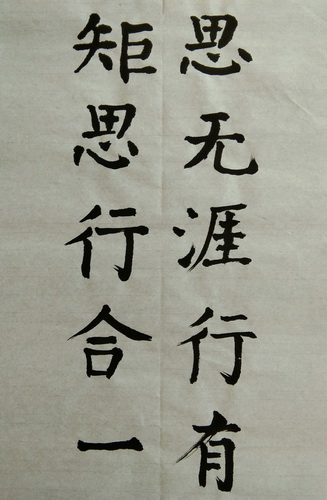 思无涯行有
矩思行合一